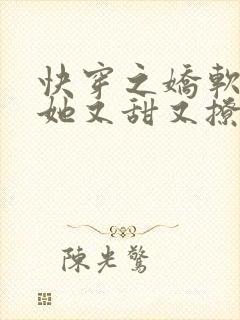 快穿之嬌軟
她又甜又撩
陳光驚